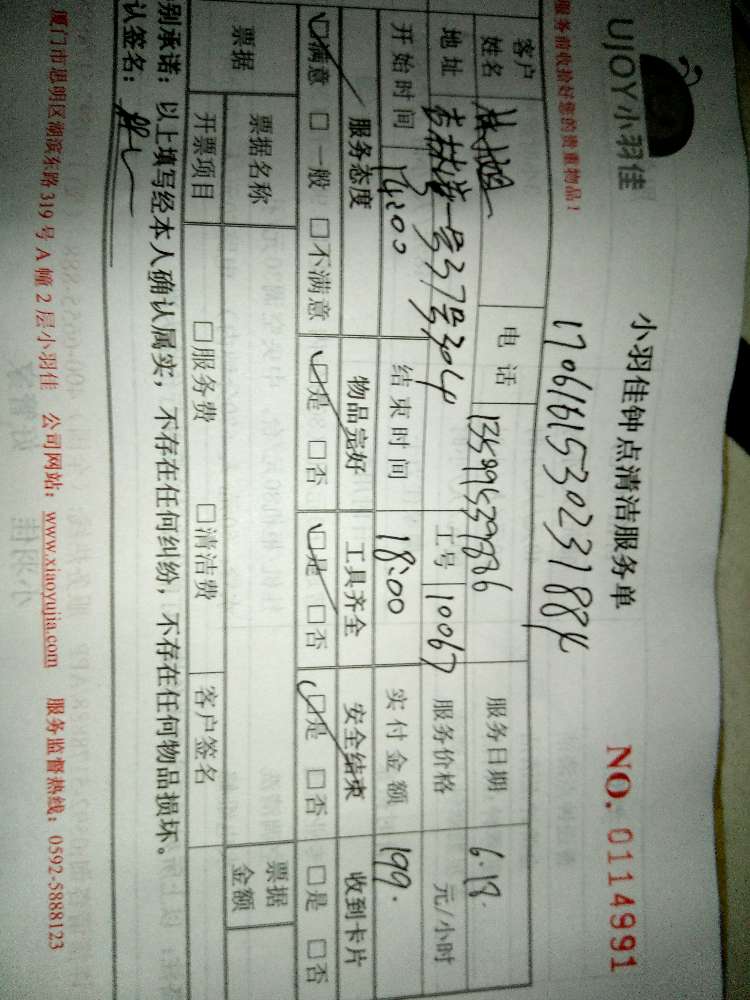 UJOY小羽佳
小羽佳钟点清洁服务单
NO. 0114991
服务前收拾好您的贵重物品！
170616153023188
客户姓名
电话
服务日期 6.18.
地址 吉林街一号37号304
工号 10067
服务价格 元/小时
开始时间 14:00
结束时间 18:00
实付金额 199.
服务态度 物品完好 工具齐全 安全结束 收到卡片
☑满意 □一般 □不满意 ☑是 □否 ☑是 □否 ☑是 □否 □是 □否
票据 票据名称 票据金额
开票项目 □服务费 □清洁费 客户签名
别承诺：以上填写经本人确认属实，不存在任何纠纷，不存在任何物品损坏。
认签名：
厦门市思明区湖滨东路319号A幢2层小羽佳 公司网站：www.xiaoyujia.com 服务监督热线：0592-5888123